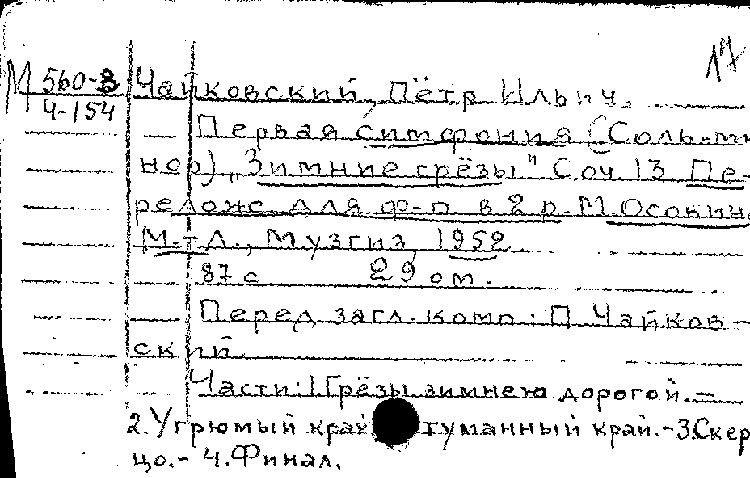 17
М 560-3 Чайковский, Пётр Ильич.
4-154
— Первая симфония (Соль-ми
нор) „Зимние грёзы" Соч. 13 Пе-
релож. для ф-п в 2 р. М. Осокина
М.-Л., Музгиз, 1952.
87 с 29 см.
Перед загл. комп.: П. Чайков-
ский.
Части: 1 Грёзы зимнею дорогой. –
2. Угрюмый край туманный край. – 3. Скер
цо. – 4. Финал.